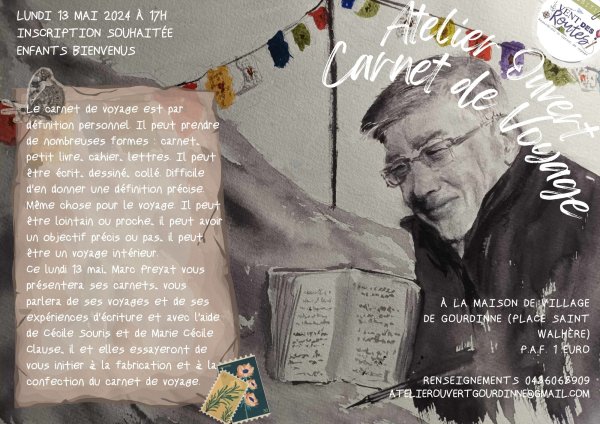 LUNDI 13 MAI 2024 À 17H
INSCRIPTION SOUHAITÉE
ENFANTS BIENVENUS
VENT DES
Routes!
Atelier Ouvert
Carnet de Voyage
Le carnet de voyage est par
définition personnel. Il peut prendre
de nombreuses formes : carnet,
petit livre, cahier, lettres. Il peut
être écrit, dessiné, collé. Difficile
d'en donner une définition précise.
Même chose pour le voyage. Il peut
être lointain ou proche, il peut avoir
un objectif précis ou pas, il peut
être un voyage intérieur.
Ce lundi 13 mai, Marc Preyat vous
présentera ses carnets, vous
parlera de ses voyages et de ses
expériences d'écriture et avec l'aide
de Cécile Souris et de Marie Cécile
Clause, il et elles essayeront de
vous initier à la fabrication et à la
confection du carnet de voyage.
À LA MAISON DE VILLAGE
DE GOURDINNE (PLACE SAINT
WALHÈRE)
P.A.F. 1 EURO
RENSEIGNEMENTS 0486068909
ATELIEROUVERTGOURDINNE@GMAIL.COM